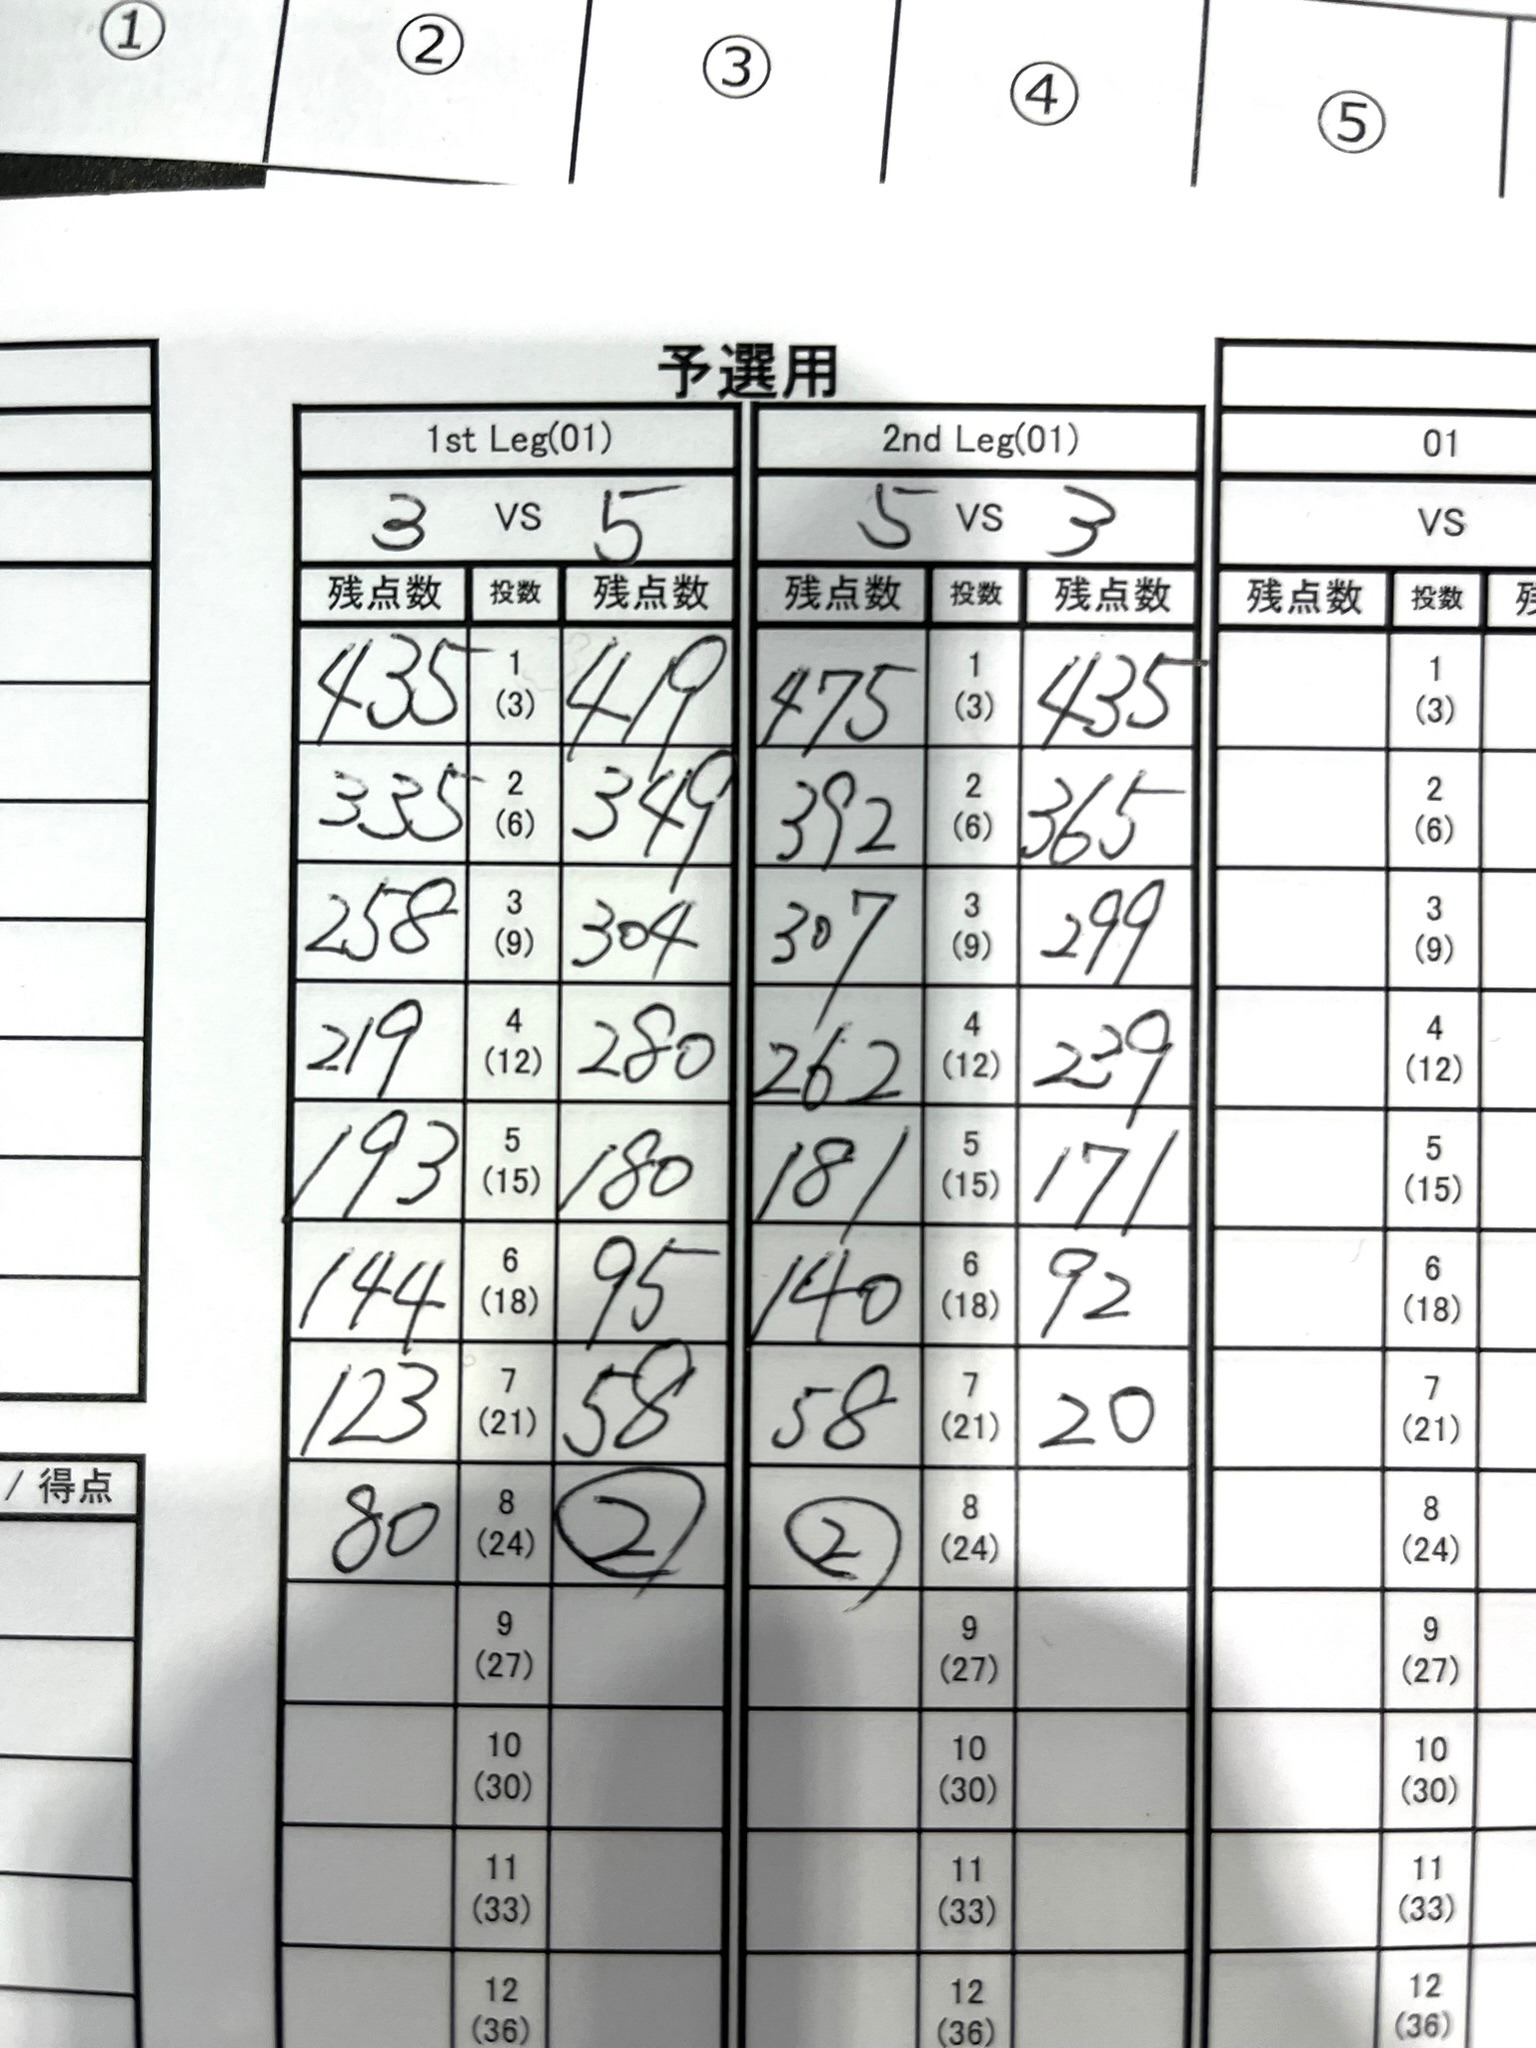 ① ② ③ ④ ⑤
予選用
1st Leg(01) 2nd Leg(01) 01
3 VS 5 5 VS 3 VS
残点数 投数 残点数 残点数 投数 残点数 残点数 投数
435 1 419 475 1 435 1
(3) (3) (3)
335 2 349 392 2 365 2
(6) (6) (6)
258 3 304 307 3 299 3
(9) (9) (9)
219 4 280 262 4 239 4
(12) (12) (12)
193 5 180 181 5 171 5
(15) (15) (15)
144 6 95 140 6 92 6
(18) (18) (18)
123 7 58 58 7 20 7
(21) (21) (21)
/ 得点
80 8 2 2 8 8
(24) (24) (24)
9 9 9
(27) (27) (27)
10 10 10
(30) (30) (30)
11 11 11
(33) (33) (33)
12 12 12
(36) (36) (36)